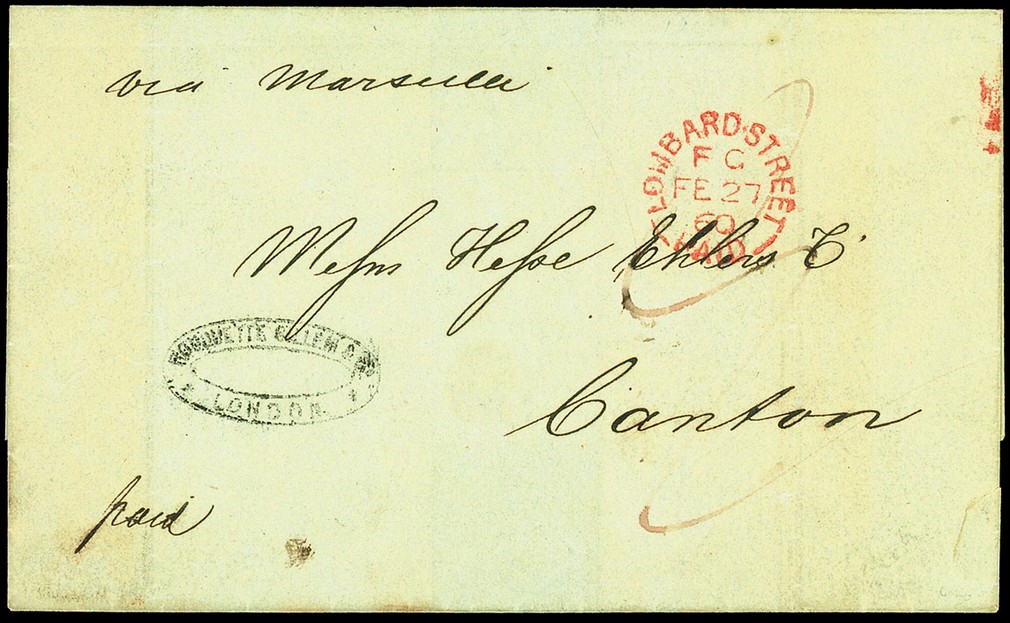 via Marseille
LOMBARD·STREET
F C
FE 27
60
PAID
Messrs Hesse Ehlers & C°
LONDON
Canton
paid